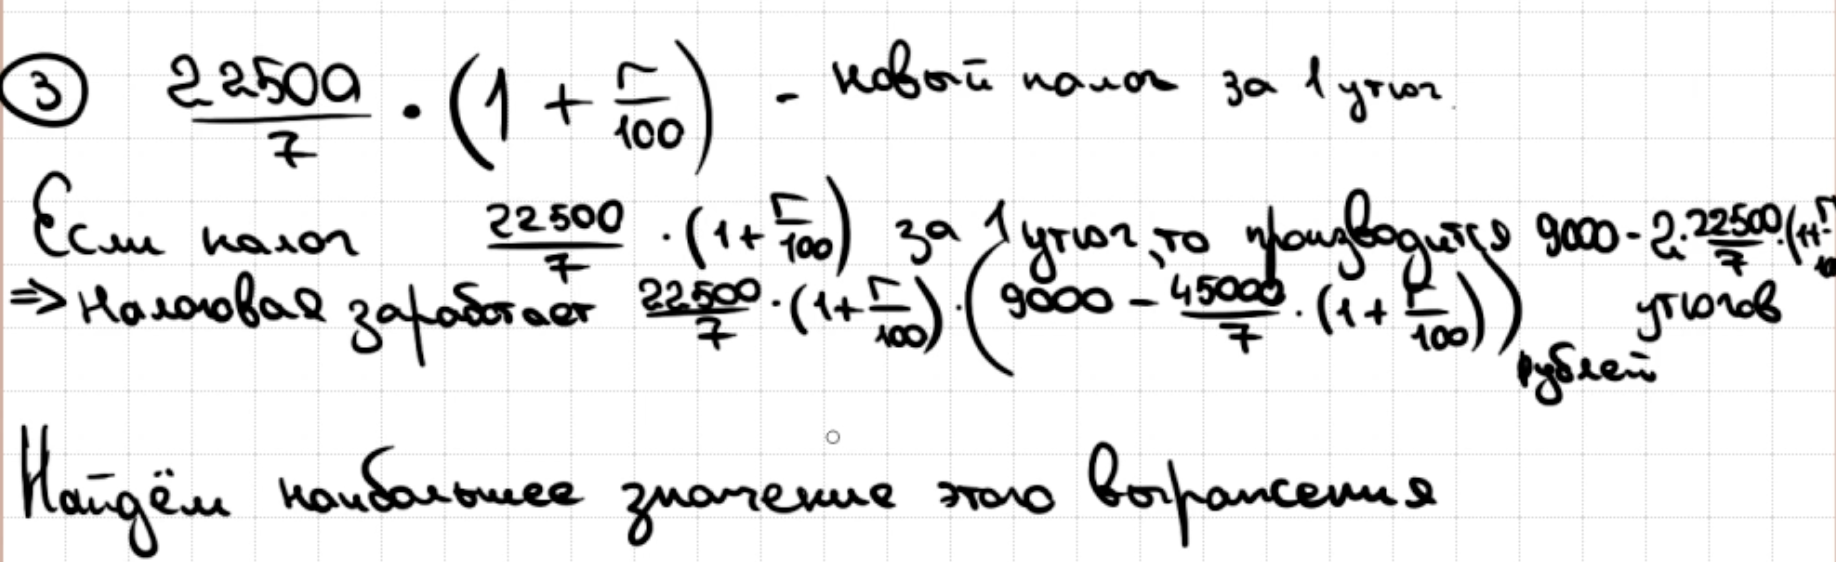 ③ 22500/7 · (1 + r/100) - новый налог за 1 утюг.
Если налог 22500/7 · (1 + r/100) за 1 утюг, то производится 9000 - 2 · 22500/7 · (1 + r/100
⇒ Налоговая заработает 22500/7 · (1 + r/100) · (9000 - 45000/7 · (1 + r/100)) рублей утюгов
Найдём наибольшее значение этого выражения